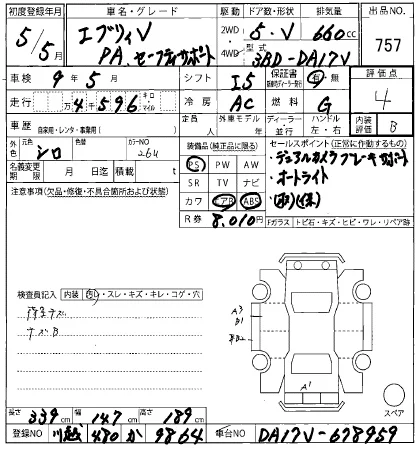 初度登録年月 車名・グレード 駆動 ドア数・形状 排気量 出品NO.
5/5月 エブリィV 2WD 5・V 660cc 757
PA セーフティサポート 4WD 型式 3BD-DA17V
車検 9年5月 シフト I5 保証書 有・無 評価点 4
走行 万4千596 キロ・マイル 冷房 AC 燃料 G
車歴 自家用・レンタ・事業用( ) 定員 人 外車モデル 年 ディーラー・並行 ハンドル 左・右 内装評価 B
外色 元色 シロ 色替 カラーNO 26U 装備品(純正品に限る) セールスポイント(正常に作動するもの)
PS PW AW ・デュアルカメラブレーキサポート
名義変更期限 月 日迄 積載 t SR TV ナビ ・オートライト
注意事項(欠品・修復・不具合箇所および状態) カワ エアB ABS (取)(保)
R券 8,010円 Fガラス トビ石・キズ・ヒビ・ワレ・リペア跡
検査員記入 内装 汚レ・スレ・キズ・キレ・コゲ・穴
A3
B1
キズB
A1
スペア
長さ 339cm 幅 147cm 高さ 189cm
登録NO 川越 480 か 9864 車台NO DA17V-678959